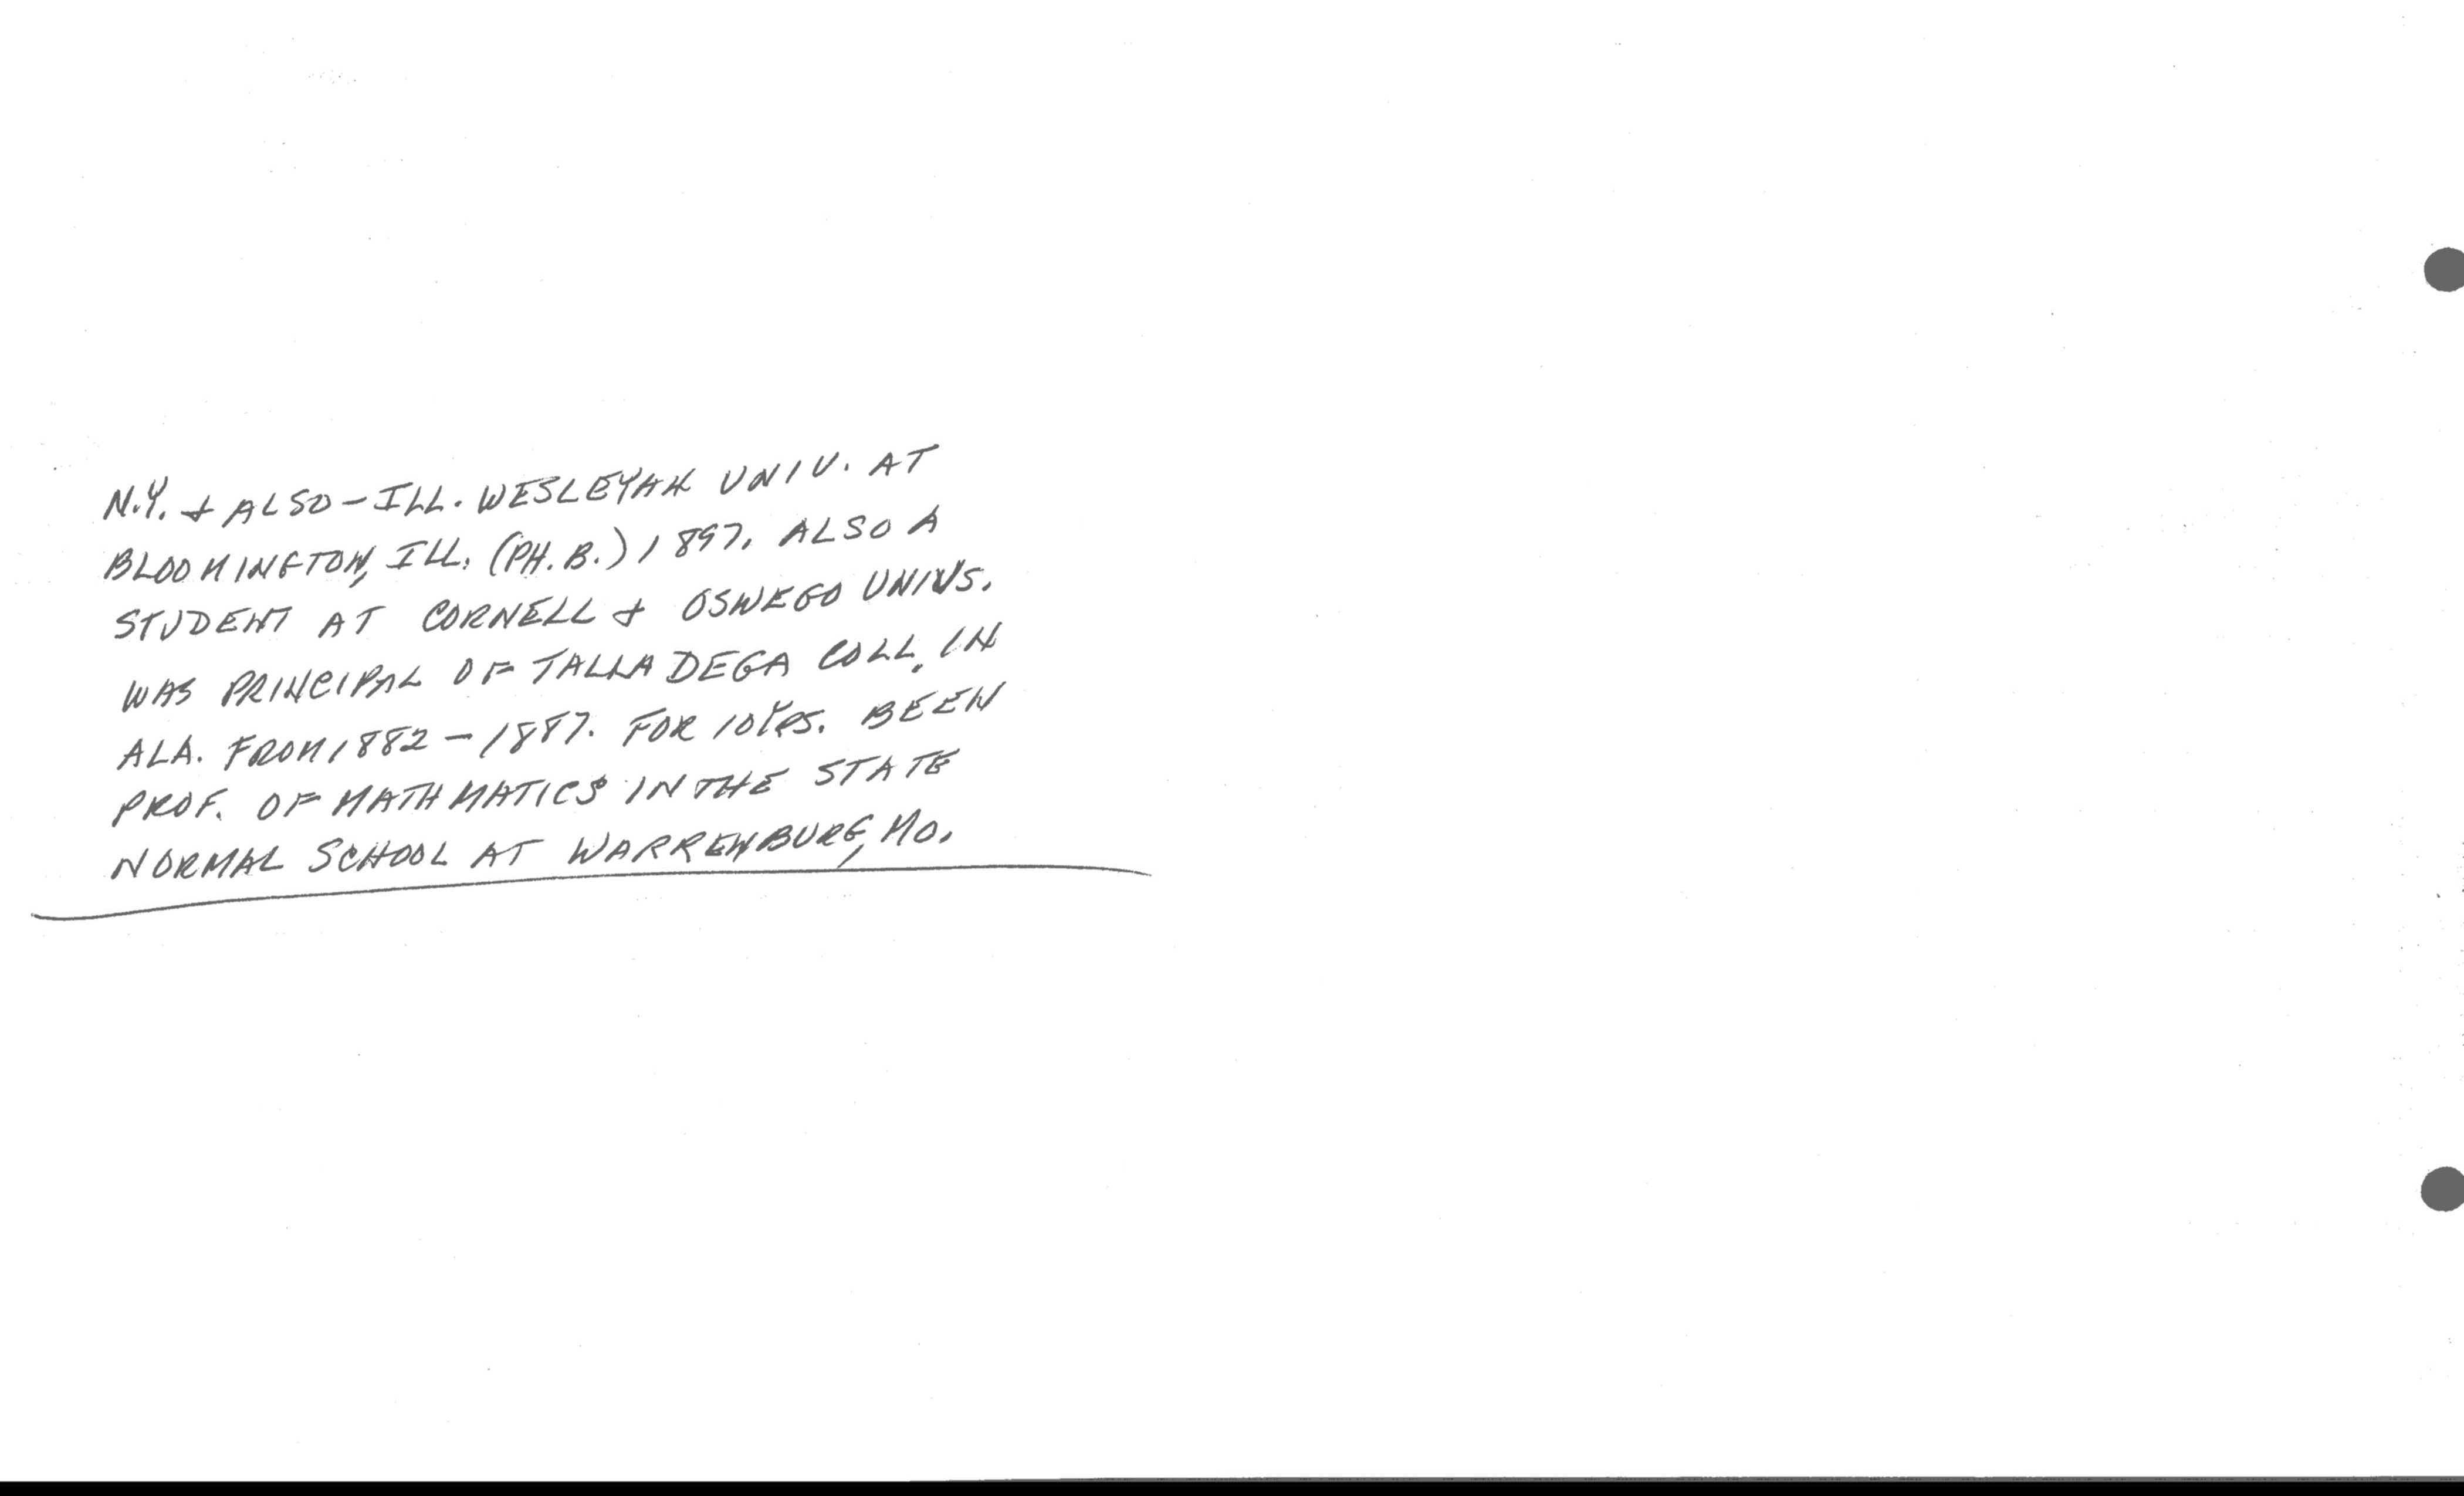 N.Y. & ALSO - ILL. WESLEYAN UNIV. AT
BLOOMINGTON, ILL. (PH.B.) 1897. ALSO A
STUDENT AT CORNELL & OSWEGO UNIVS.
WAS PRINCIPAL OF TALLADEGA COLL. IN
ALA. FROM 1882 - 1887. FOR 10 YRS. BEEN
PROF. OF MATHMATICS IN THE STATE
NORMAL SCHOOL AT WARRENBURG, MO.